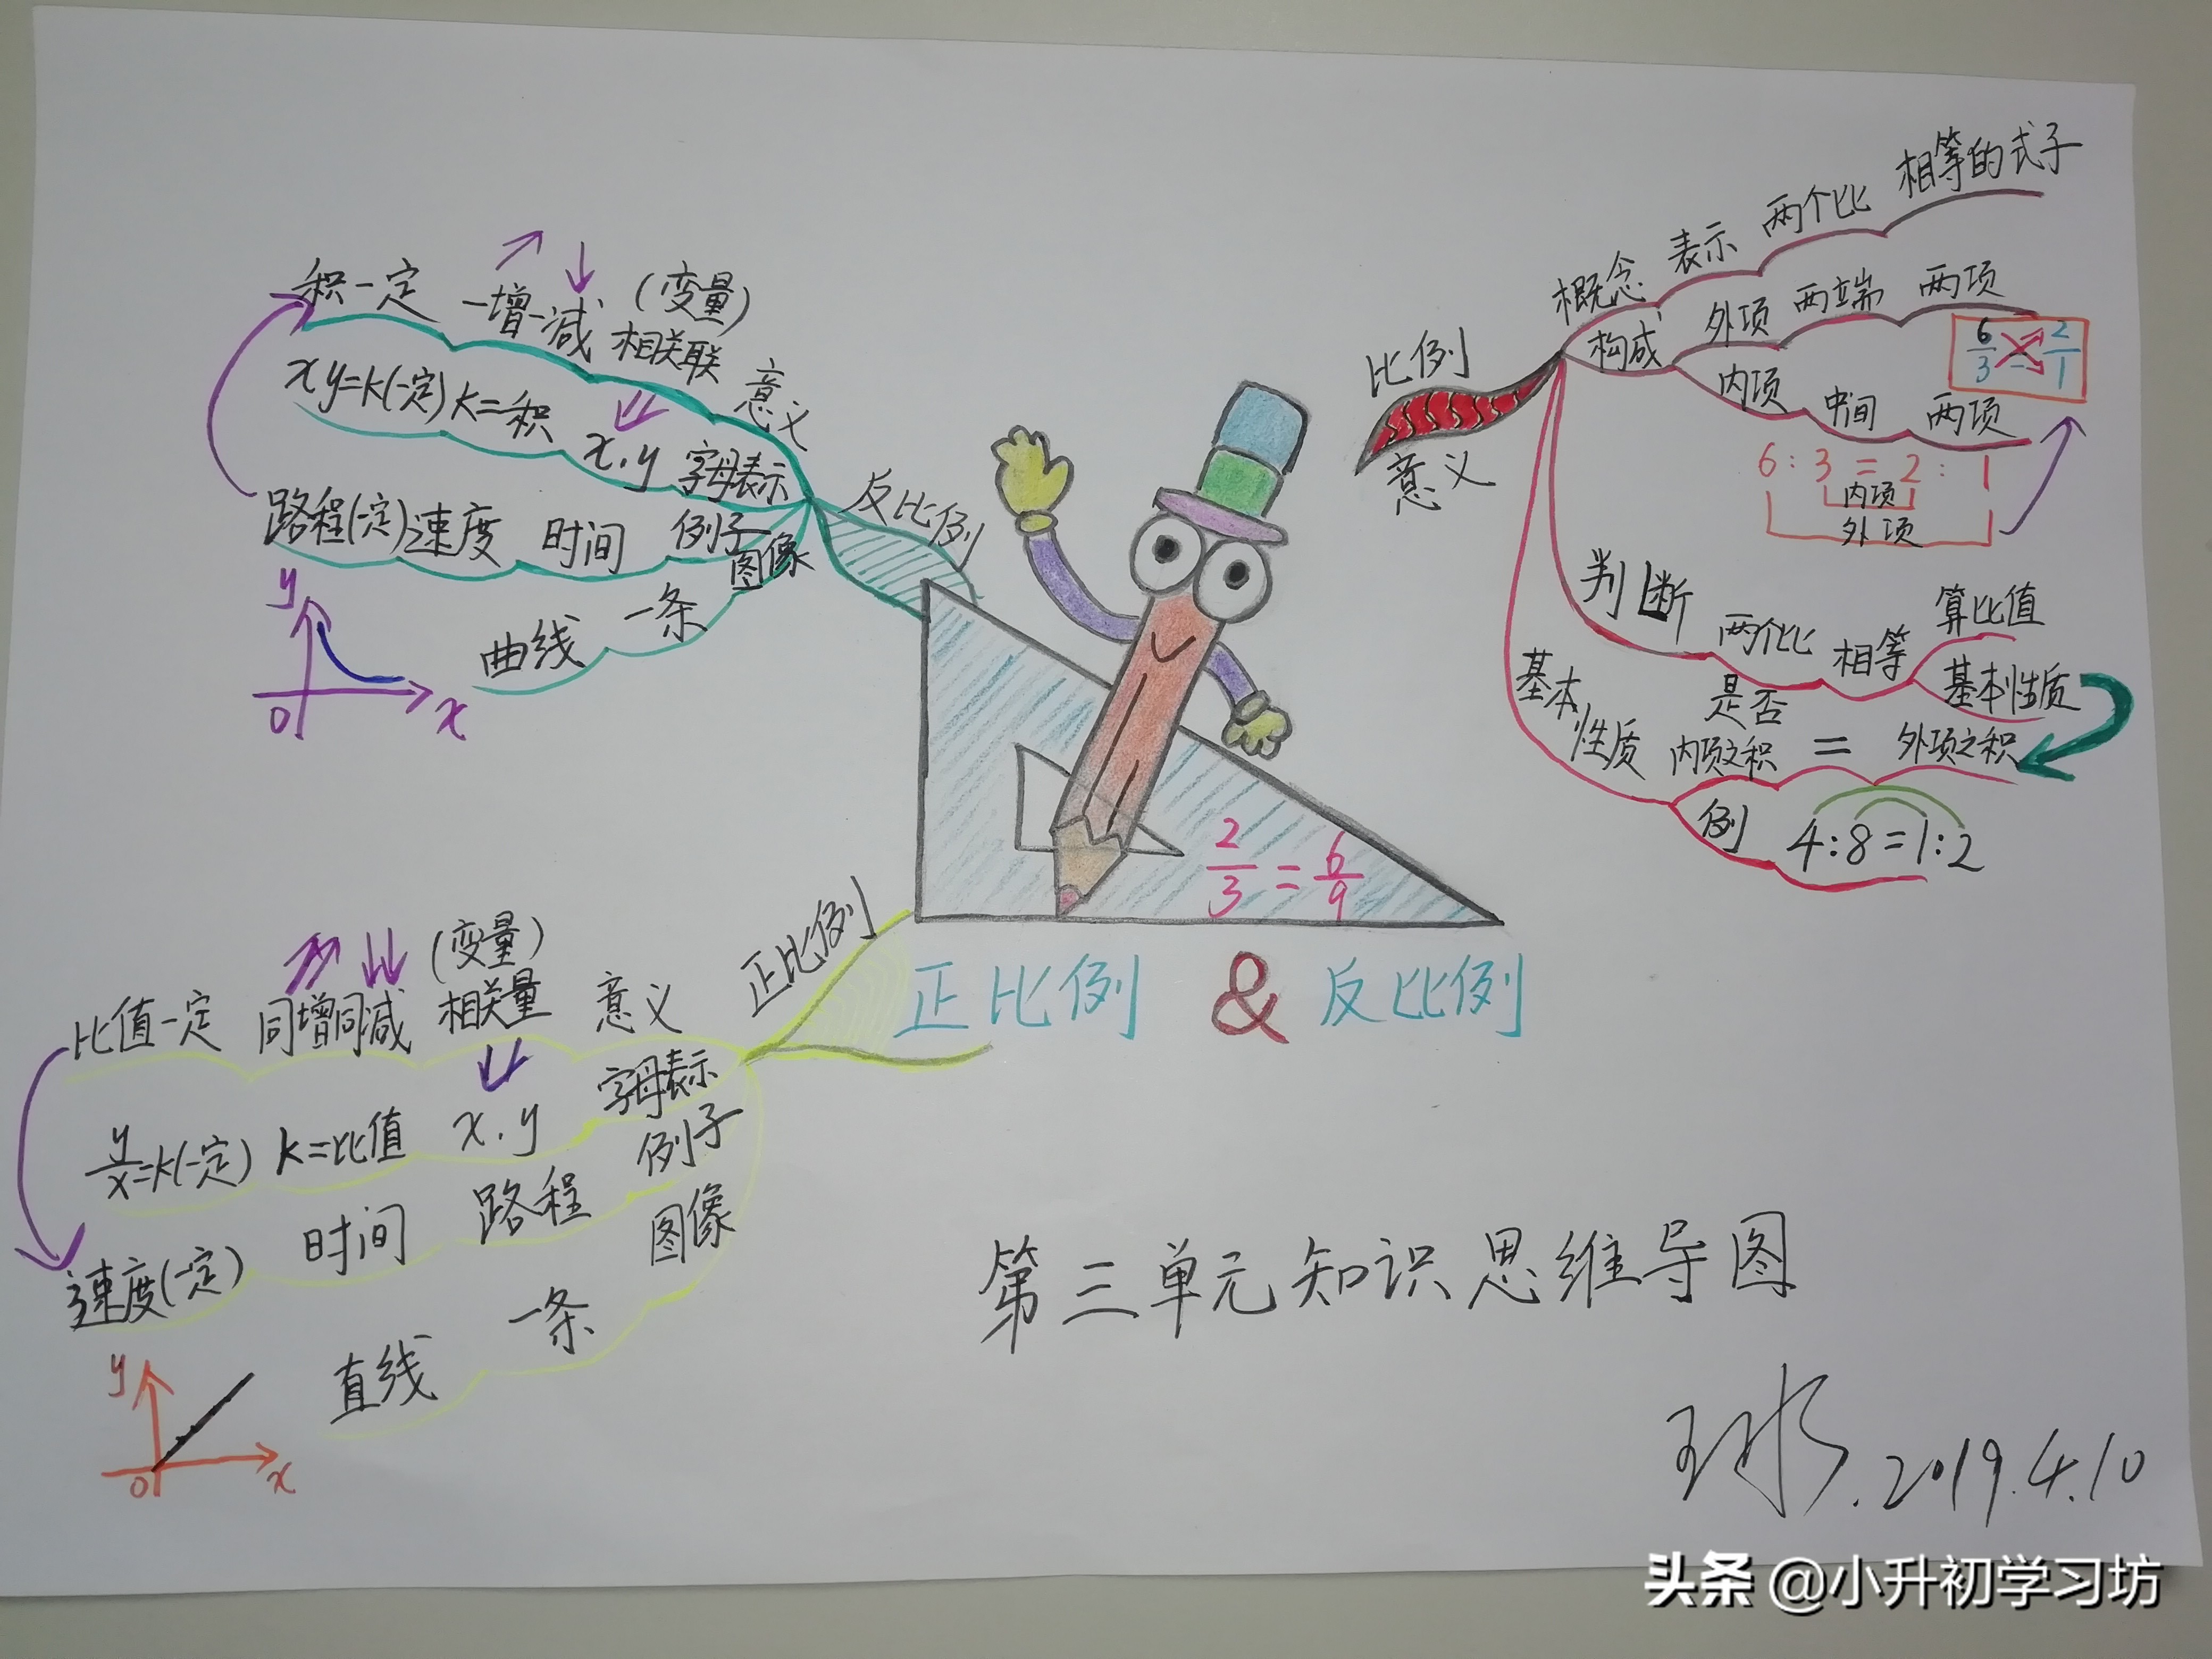 比例
意义
概念 表示 两个比 相等的式子
构成 外项 两端 两项
内项 中间 两项
6/3 = 2/1
6:3=2:1
内项
外项
判断 两个比 相等 算比值
是否 基本性质
基本性质 内项之积 = 外项之积
例 4:8=1:2
反比例
意义 相关联 (变量) 一增一减 积一定
字母表示 x,y k=积 xy=k(一定)
例子 时间 速度 路程(一定)
图像 一条 曲线
y
0
x
2/3 = 6/9
正比例 & 反比例
正比例
意义 相关量 (变量) 同增同减 比值一定
字母表示 x,y k=比值 y/x=k(一定)
例子 路程 时间 速度(一定)
图像 一条 直线
y
0
x
第三单元知识思维导图
2019.4.10
头条 @小升初学习坊